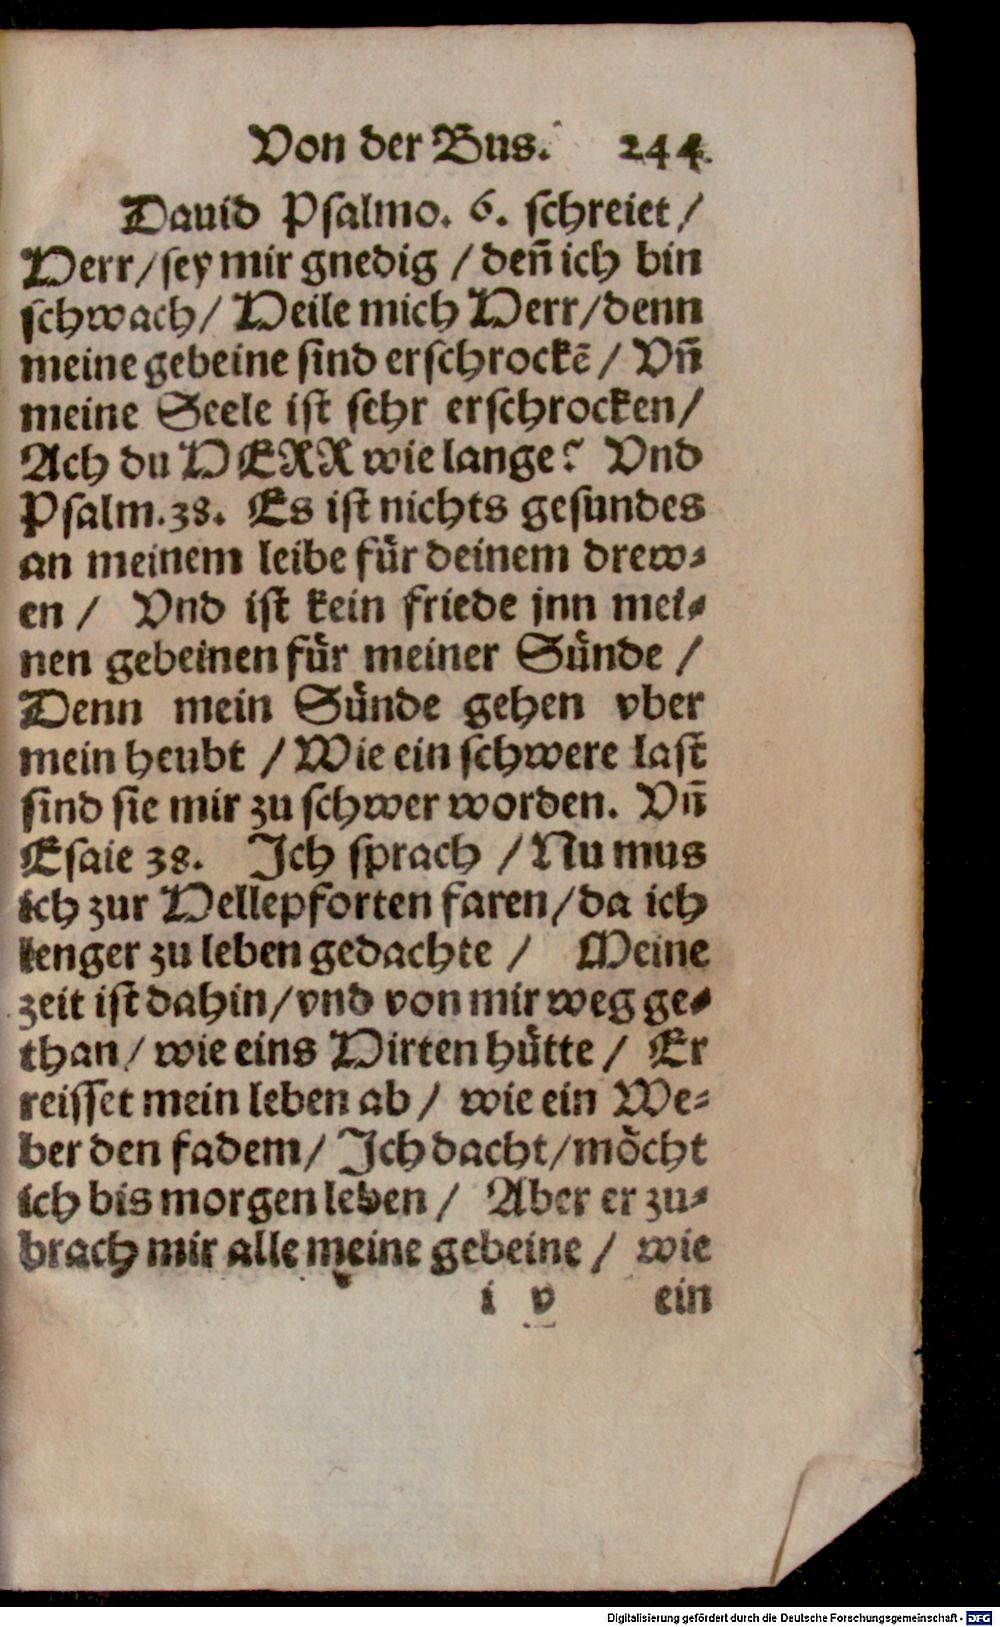 Von der Bus. 244.
Dauid Psalmo. 6. schreiet /
Herr / sey mir gnedig / deñ ich bin
schwach / Heile mich Herr / denn
meine gebeine sind erschrockē / Vñ
meine Seele ist sehr erschrocken /
Ach du HERR wie lange? Vnd
Psalm. 38. Es ist nichts gesundes
an meinem leibe für deinem drew-
en / Vnd ist kein friede jnn mei-
nen gebeinen für meiner Sünde /
Denn mein Sünde gehen vber
mein heubt / Wie ein schwere last
sind sie mir zu schwer worden. Vñ
Esaie 38. Ich sprach / Nu mus
ich zur Hellepforten faren / da ich
lenger zu leben gedachte / Meine
zeit ist dahin / vnd von mir weg ge-
than / wie eins Hirten hütte / Er
reisset mein leben ab / wie ein We-
ber den fadem / Ich dacht / möcht
ich bis morgen leben / Aber er zu-
brach mir alle meine gebeine / wie
i v ein
Digitalisierung gefördert durch die Deutsche Forschungsgemeinschaft - DFG